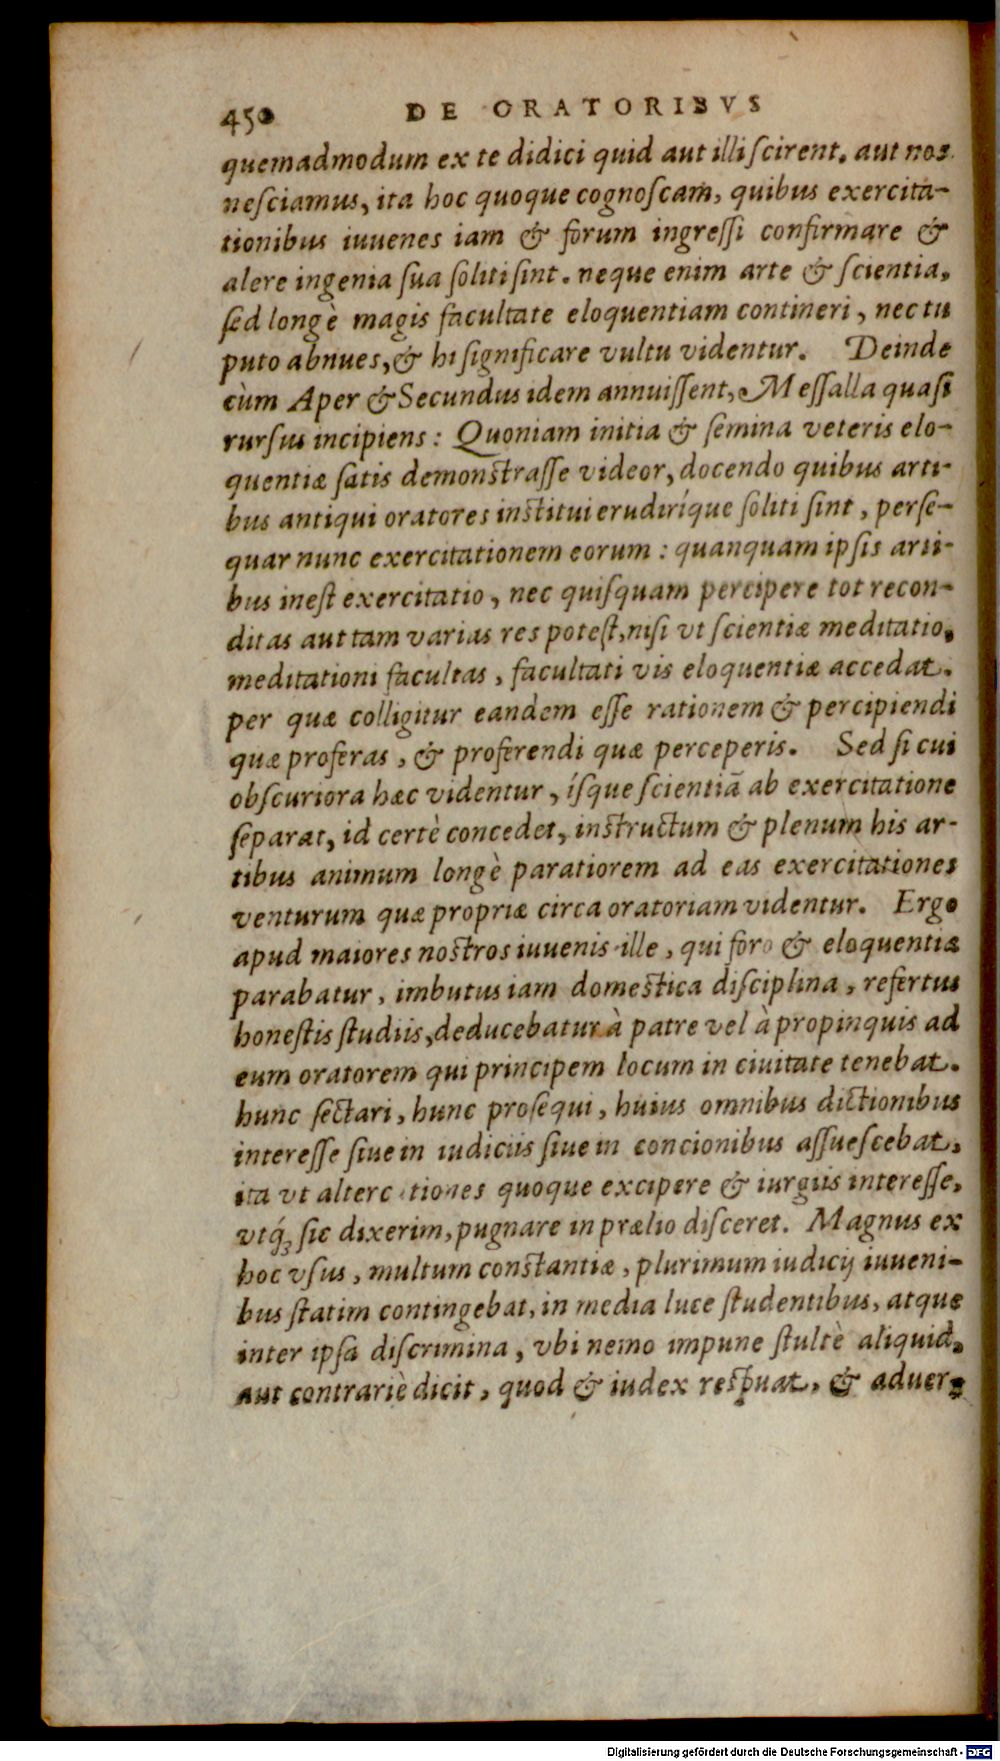 450 DE ORATORIBVS
quemadmodum ex te didici quid aut illi ſcirent, aut nos
neſciamus, ita hoc quoque cognoſcam, quibus exercita-
tionibus iuuenes iam & forum ingreſſi confirmare &
alere ingenia ſua ſoliti ſint. neque enim arte & ſcientia,
ſed longè magis facultate eloquentiam contineri, nec tu
puto abnues, & hi ſignificare vultu videntur. Deinde
cùm Aper & Secundus idem annuiſſent, Meſſalla quaſi
rurſus incipiens: Quoniam initia & ſemina veteris elo-
quentiæ ſatis demonſtraſſe videor, docendo quibus arti-
bus antiqui oratores inſtitui erudiríque ſoliti ſint, perſe-
quar nunc exercitationem eorum: quanquam ipſis arti-
bus ineſt exercitatio, nec quiſquam percipere tot recon-
ditas aut tam varias res poteſt, niſi vt ſcientiæ meditatio,
meditationi facultas, facultati vis eloquentiæ accedat.
per quæ colligitur eandem eſſe rationem & percipiendi
quæ proferas, & proferendi quæ perceperis. Sed ſi cui
obſcuriora hæc videntur, íſque ſcientiã ab exercitatione
ſeparat, id certè concedet, inſtructum & plenum his ar-
tibus animum longè paratiorem ad eas exercitationes
venturum quæ propriæ circa oratoriam videntur. Ergo
apud maiores noſtros iuuenis ille, qui foro & eloquentiæ
parabatur, imbutus iam domeſtica diſciplina, refertus
honeſtis ſtudiis, deducebatur à patre vel à propinquis ad
eum oratorem qui principem locum in ciuitate tenebat.
hunc ſectari, hunc proſequi, huius omnibus dictionibus
intereſſe ſiue in iudiciis ſiue in concionibus aſſueſcebat,
ita vt alterc tiones quoque excipere & iurgiis intereſſe,
vtq́ꝫ ſic dixerim, pugnare in prælio diſceret. Magnus ex
hoc vſus, multum conſtantiæ, plurimum iudicij iuueni-
bus ſtatim contingebat, in media luce ſtudentibus, atque
inter ipſa diſcrimina, vbi nemo impune ſtultè aliquid,
aut contrariè dicit, quod & iudex reſpuat, & aduer-
Digitalisierung gefördert durch die Deutsche Forschungsgemeinschaft - DFG